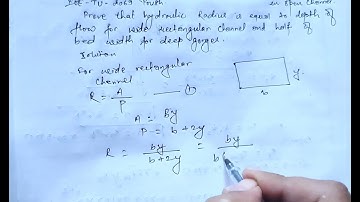 in open channel
Prove that hydraulic Radius is equal to depth of
flow for wide rectangular channel and half of
bed width for deep gorges.
Solution
For wide rectangular
channel
R = A/P — ①
y
b
A = By
P = b + 2y
R = by/(b+2y) = by/b